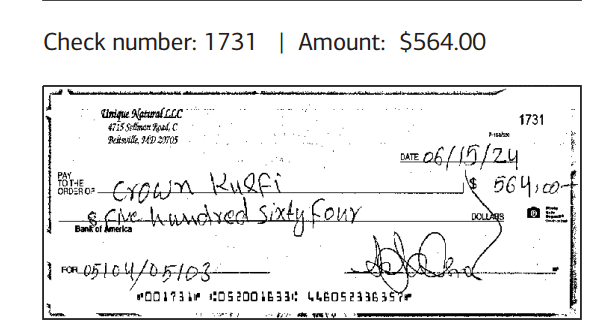 Check number: 1731 | Amount: $564.00
Unique Natural LLC
4715 Sellman Road, C
Beltsville, MD 20705
1731
DATE 06/15/24
PAY TO THE ORDER OF Crown Kulfi $ 564.00
$ five hundred sixty four DOLLARS
Bank of America
FOR 05104/05103
⑈001731⑈ ⑆052001633⑆ 446052336357⑈